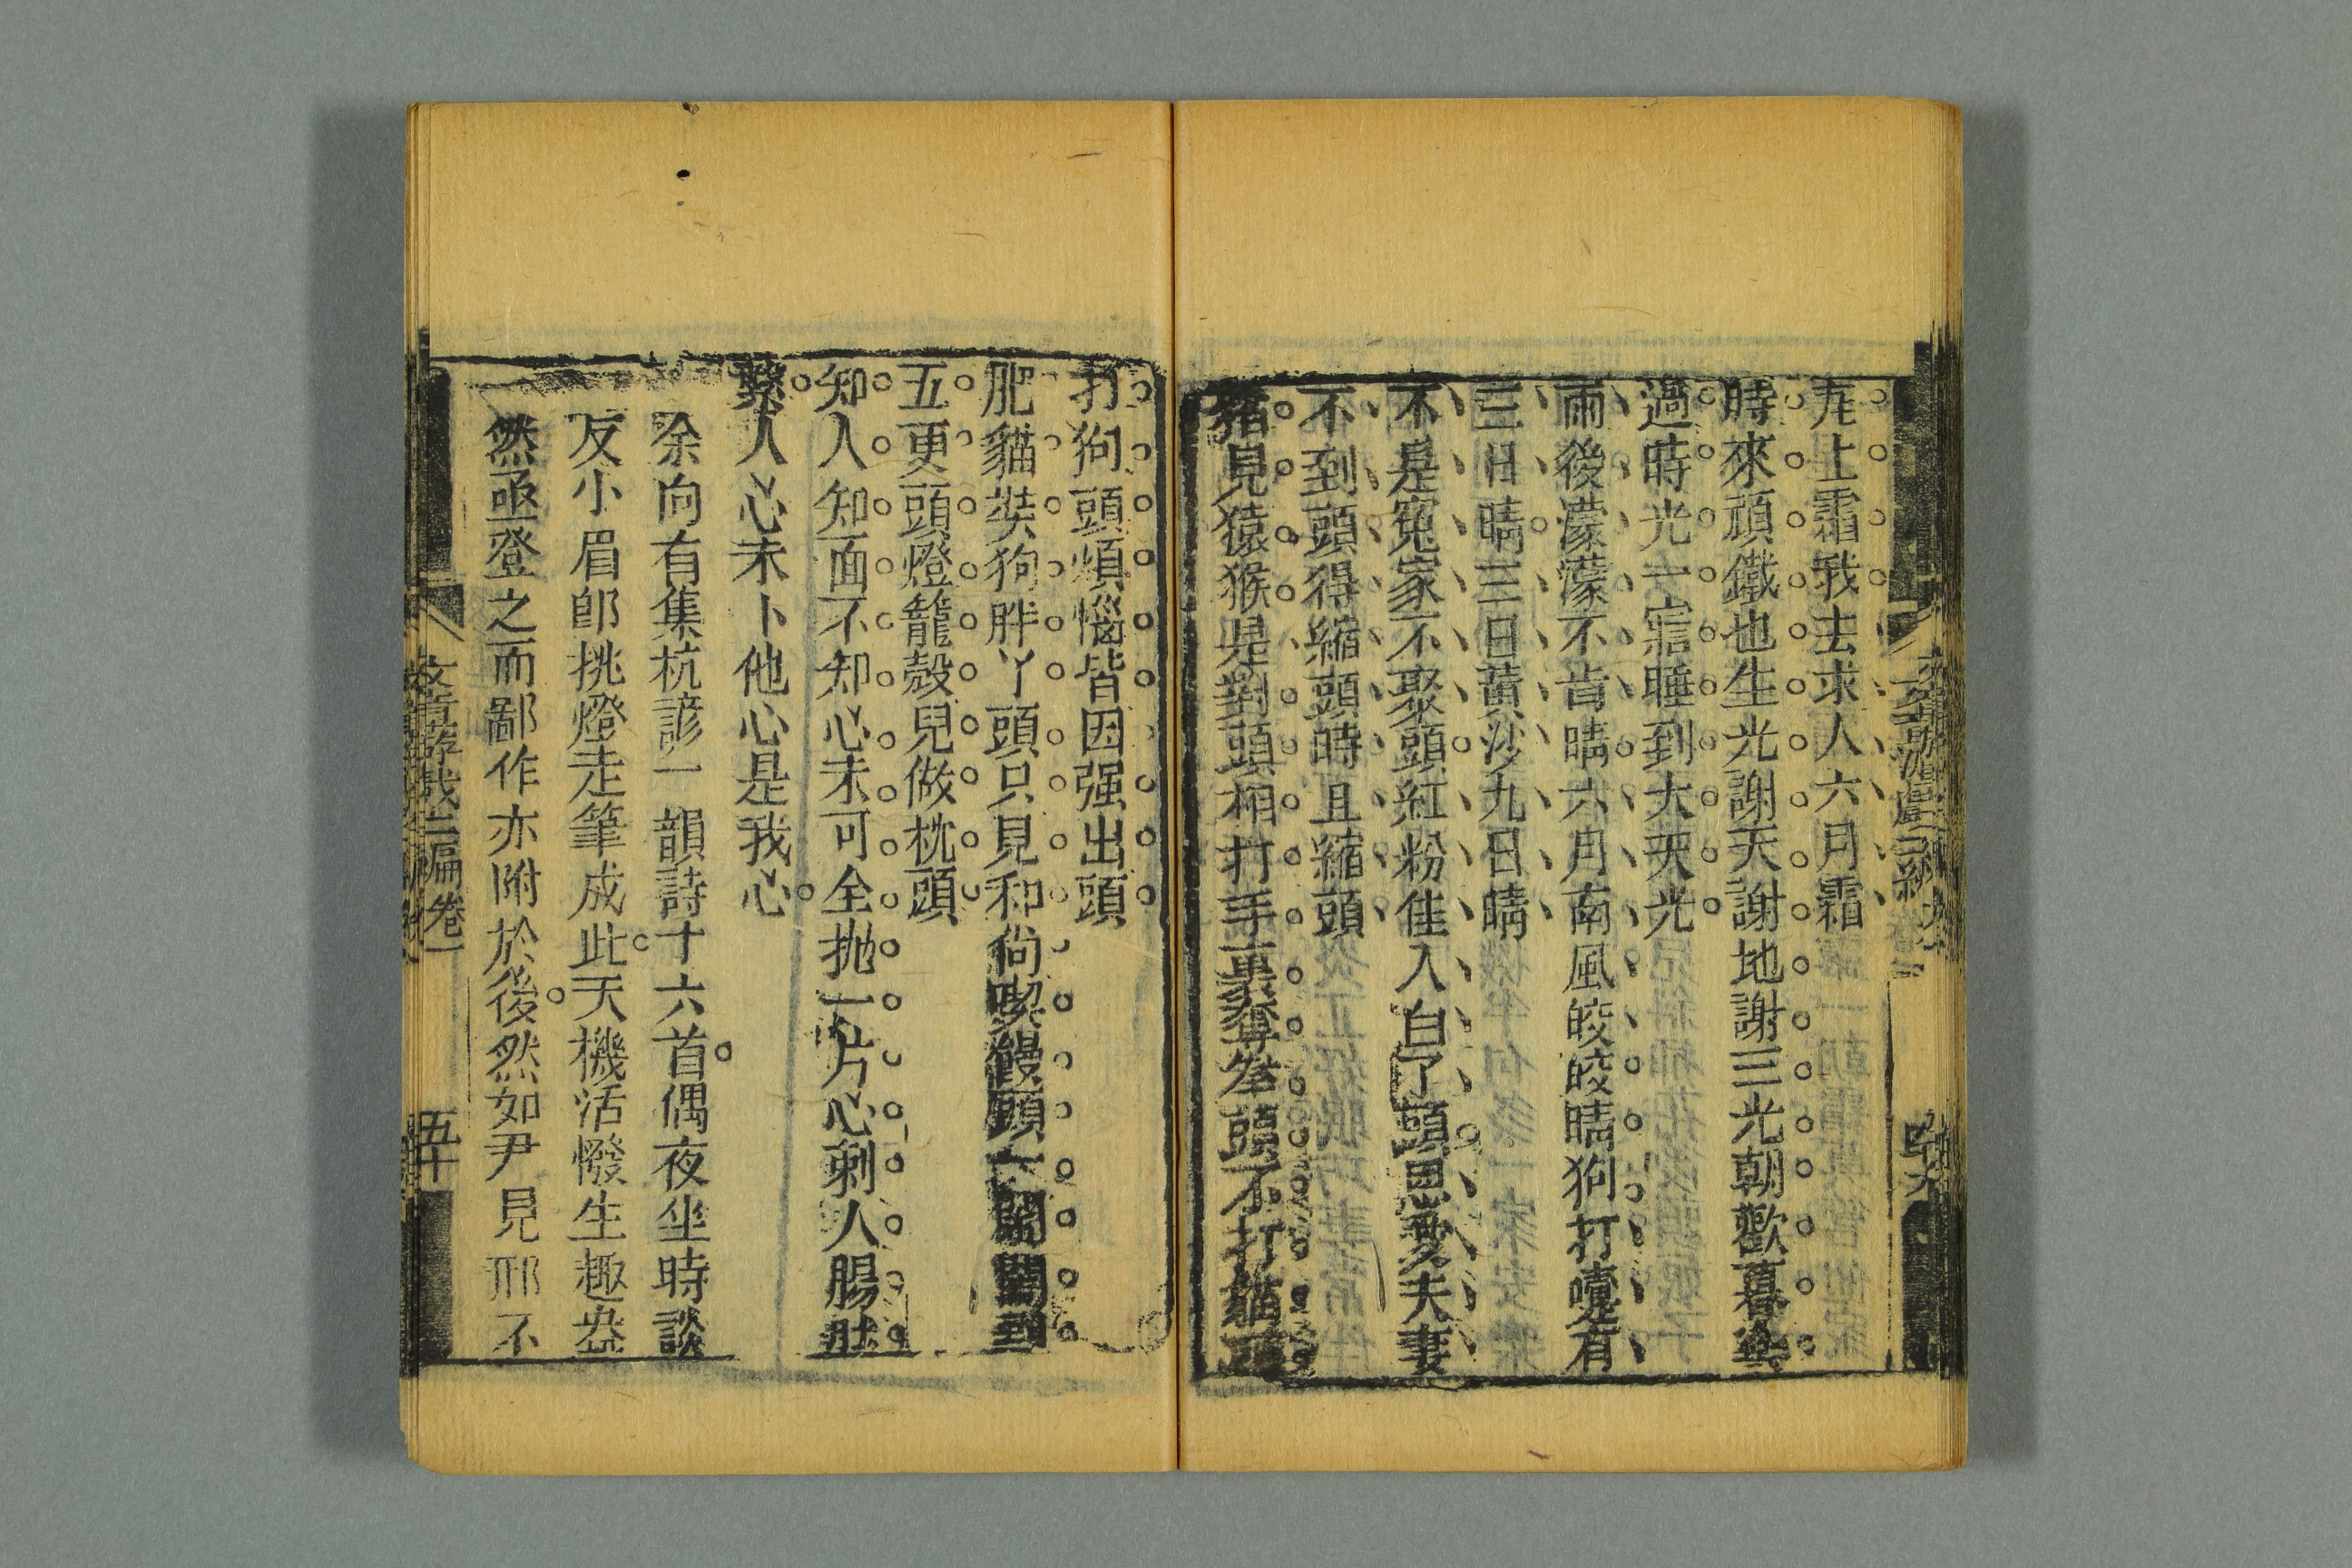 上霜我去求人六月霜
時來頑鐵也生光謝天謝地謝三光朝歡暮樂
過時光一寤睡到大天光
雨後濛濛不肯晴六月南風皎皎晴狗打嚏有
三日晴三日黃沙九日晴
不是寃家不聚頭紅粉佳人白了頭恩愛夫妻
不到頭得縮頭時且縮頭
豬見猿猴是對頭相打手裏奪拳頭不打貓
打狗頭煩惱皆因强出頭
肥貓奘狗胖丫頭只見和尙喫饅頭一鬧鬧到
五更頭燈籠殼兒做枕頭
知人知面不知心未可全拋一片心剌人腸肚
繫人心未卜他心是我心
余向有集杭諺一韻詩十六首偶夜坐時談
友小眉卽挑燈走筆成此天機活潑生趣盎
然亟登之而鄙作亦附於後然如尹見邢不
文章游戲三編卷一
五十